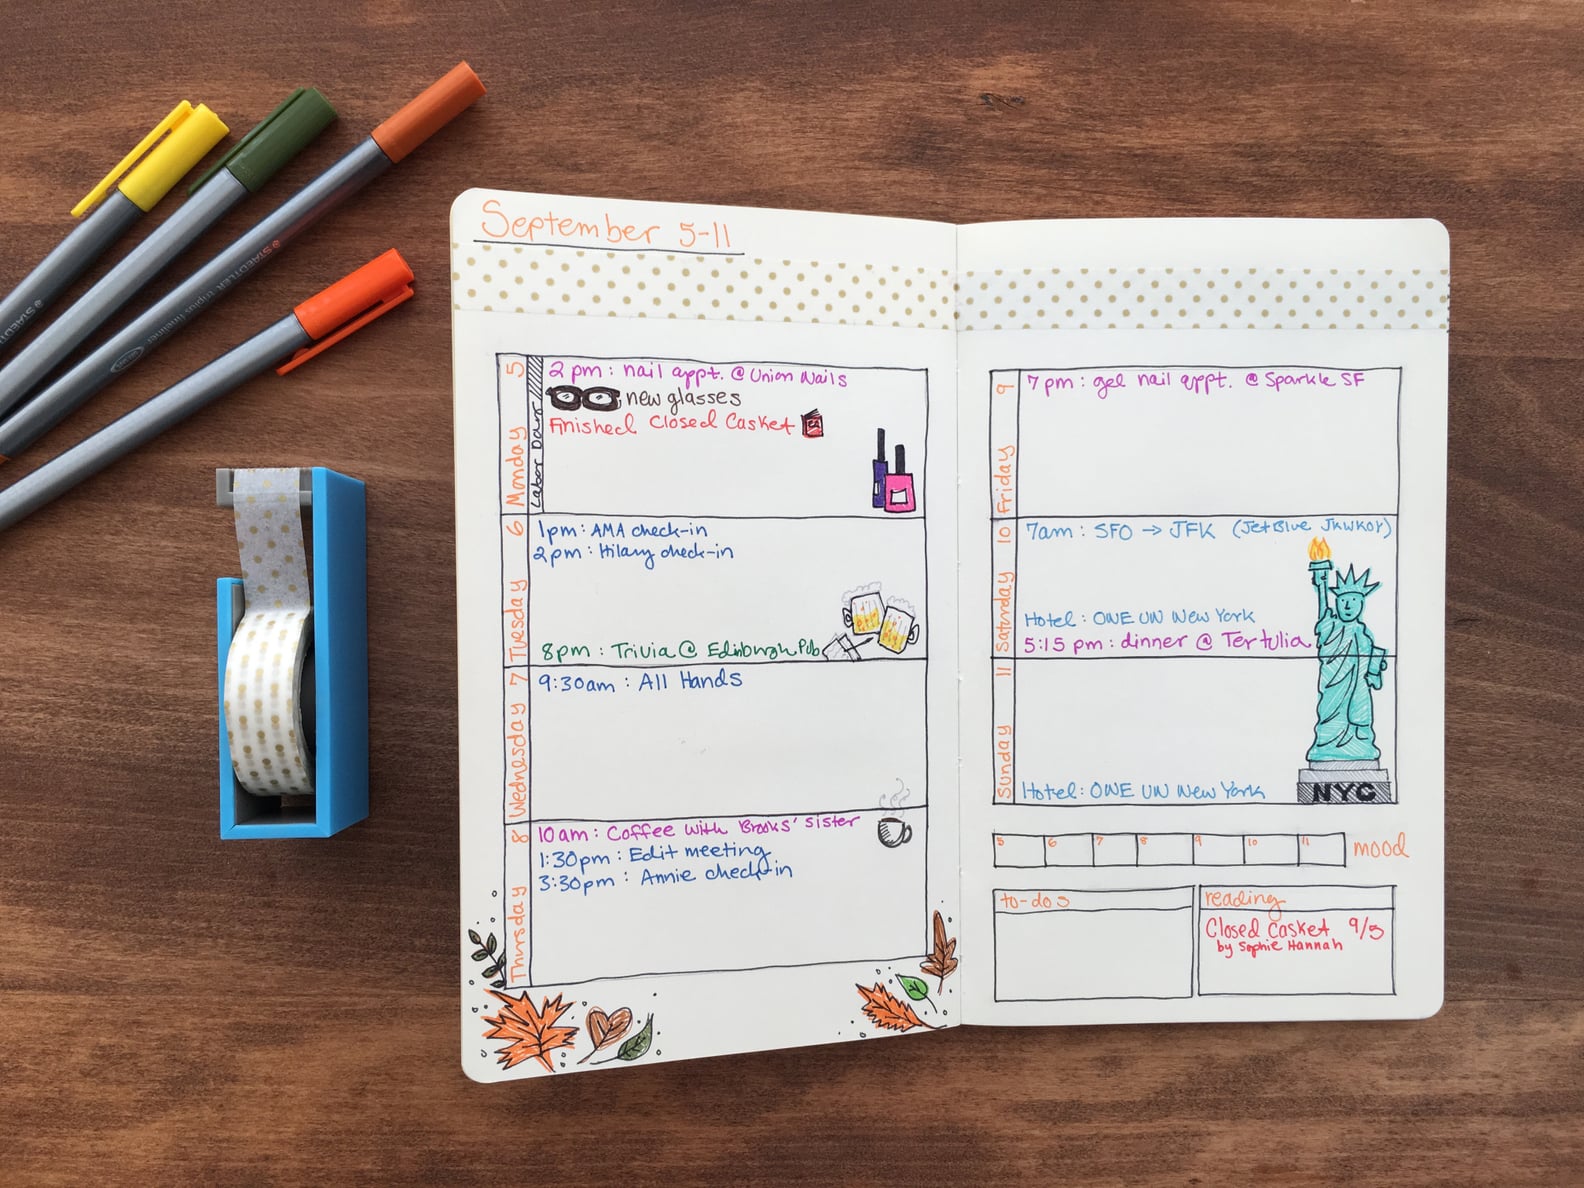 September 5-11
Monday 5
Labor Day
2pm: nail appt. @ Union Nails
new glasses
Finished Closed Casket
Tuesday 6
1pm: AMA check-in
2pm: Hilary check-in
8pm: Trivia @ Edinburgh Pub
Wednesday 7
9:30am: All Hands
Thursday 8
10am: Coffee with Brooks' sister
1:30pm: Edit meeting
3:30pm: Annie check-in
Friday 9
7pm: gel nail appt. @ Sparkle SF
Saturday 10
7am: SFO → JFK (JetBlue
Hotel: ONE UN New York
5:15 pm: dinner @ Tertulia
Sunday 11
Hotel: ONE UN New York
NYC
5 6 7 8 9 10 11 mood
to-dos
reading
Closed Casket 9/5
by Sophie Hannah
STAEDTLER triplus fineliner
STAEDTL